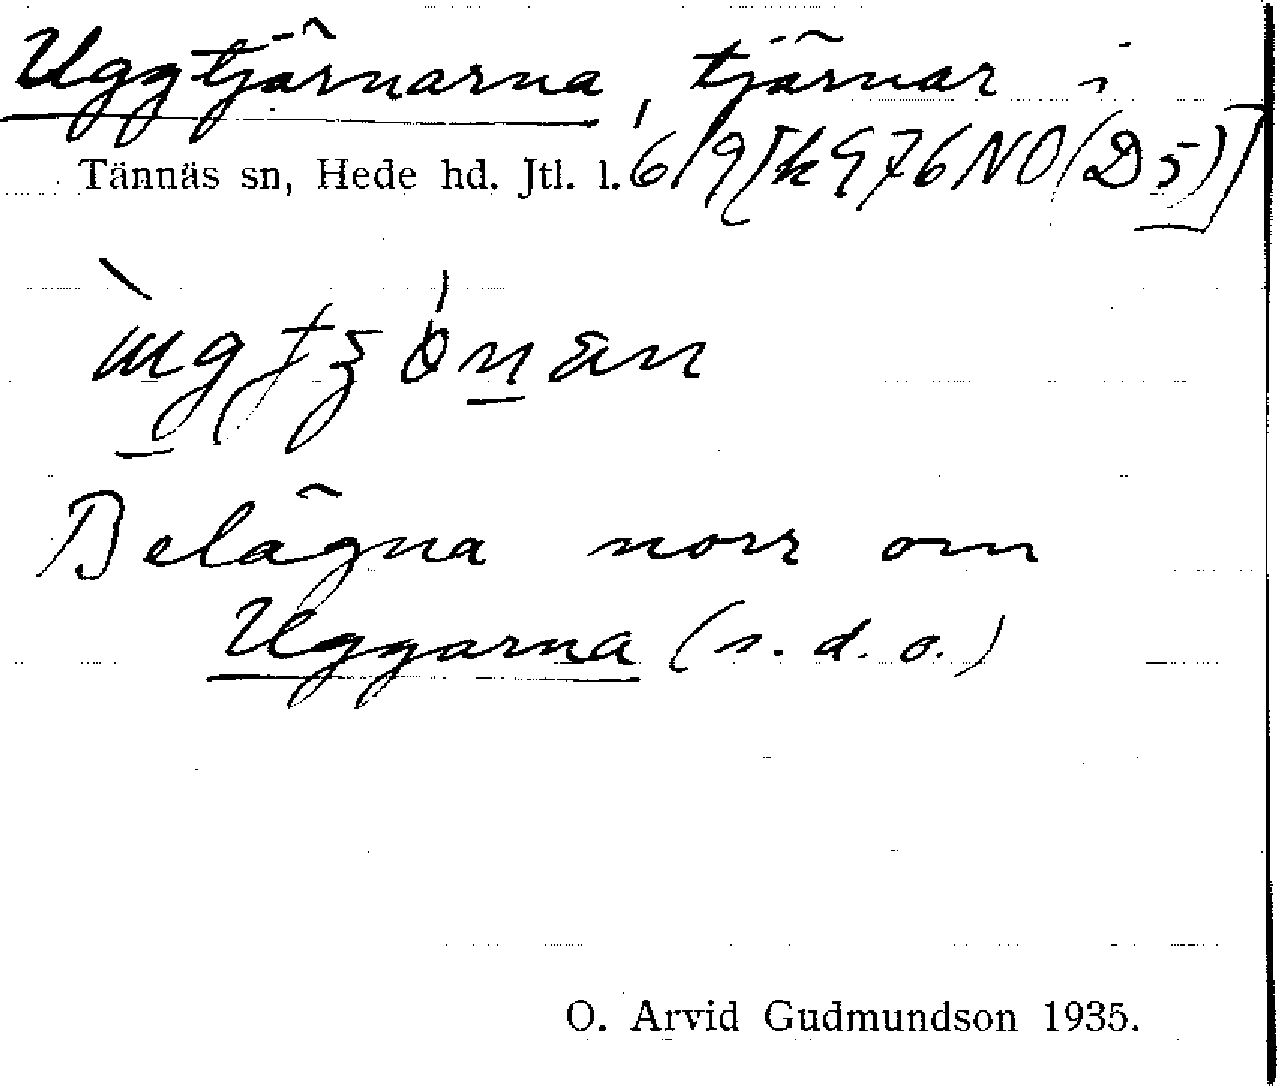 Uggtjärnarna, tjärnar i
Tännäs sn, Hede hd. Jtl. l. 6/9 [k 976 NO (D 5)]
Belägna norr om
Uggarna (s. d. o.)
O. Arvid Gudmundson 1935.